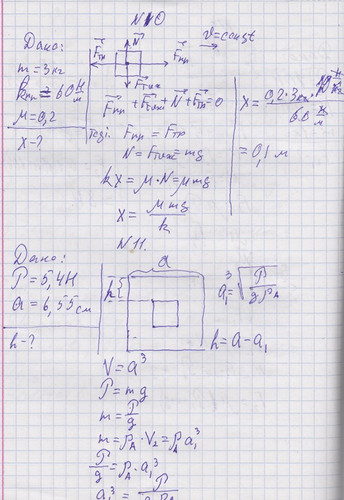 N10
Дано:
m = 3 кг
kпр = 60 Н/м
μ = 0,2
x - ?
N
v = const
Fтр
Fпр
Fтяж
Fпр + Fтяж + N + Fтр = 0
Тоді: Fпр = Fтр
N = Fтяж = mg
kx = μ·N = μmg
x = μmg/k
x = 0,2·3кг·10 Н/кг / 60 Н/м
= 0,1 м
N11.
Дано:
P = 5,4Н
a = 6,55 см
h - ?
a
h
a₁ = ³√(P/gρл)
h = a - a₁
V = a³
P = mg
m = P/g
m = ρл·V₂ = ρл a₁³
P/g = ρл·a₁³
a₁³ = P